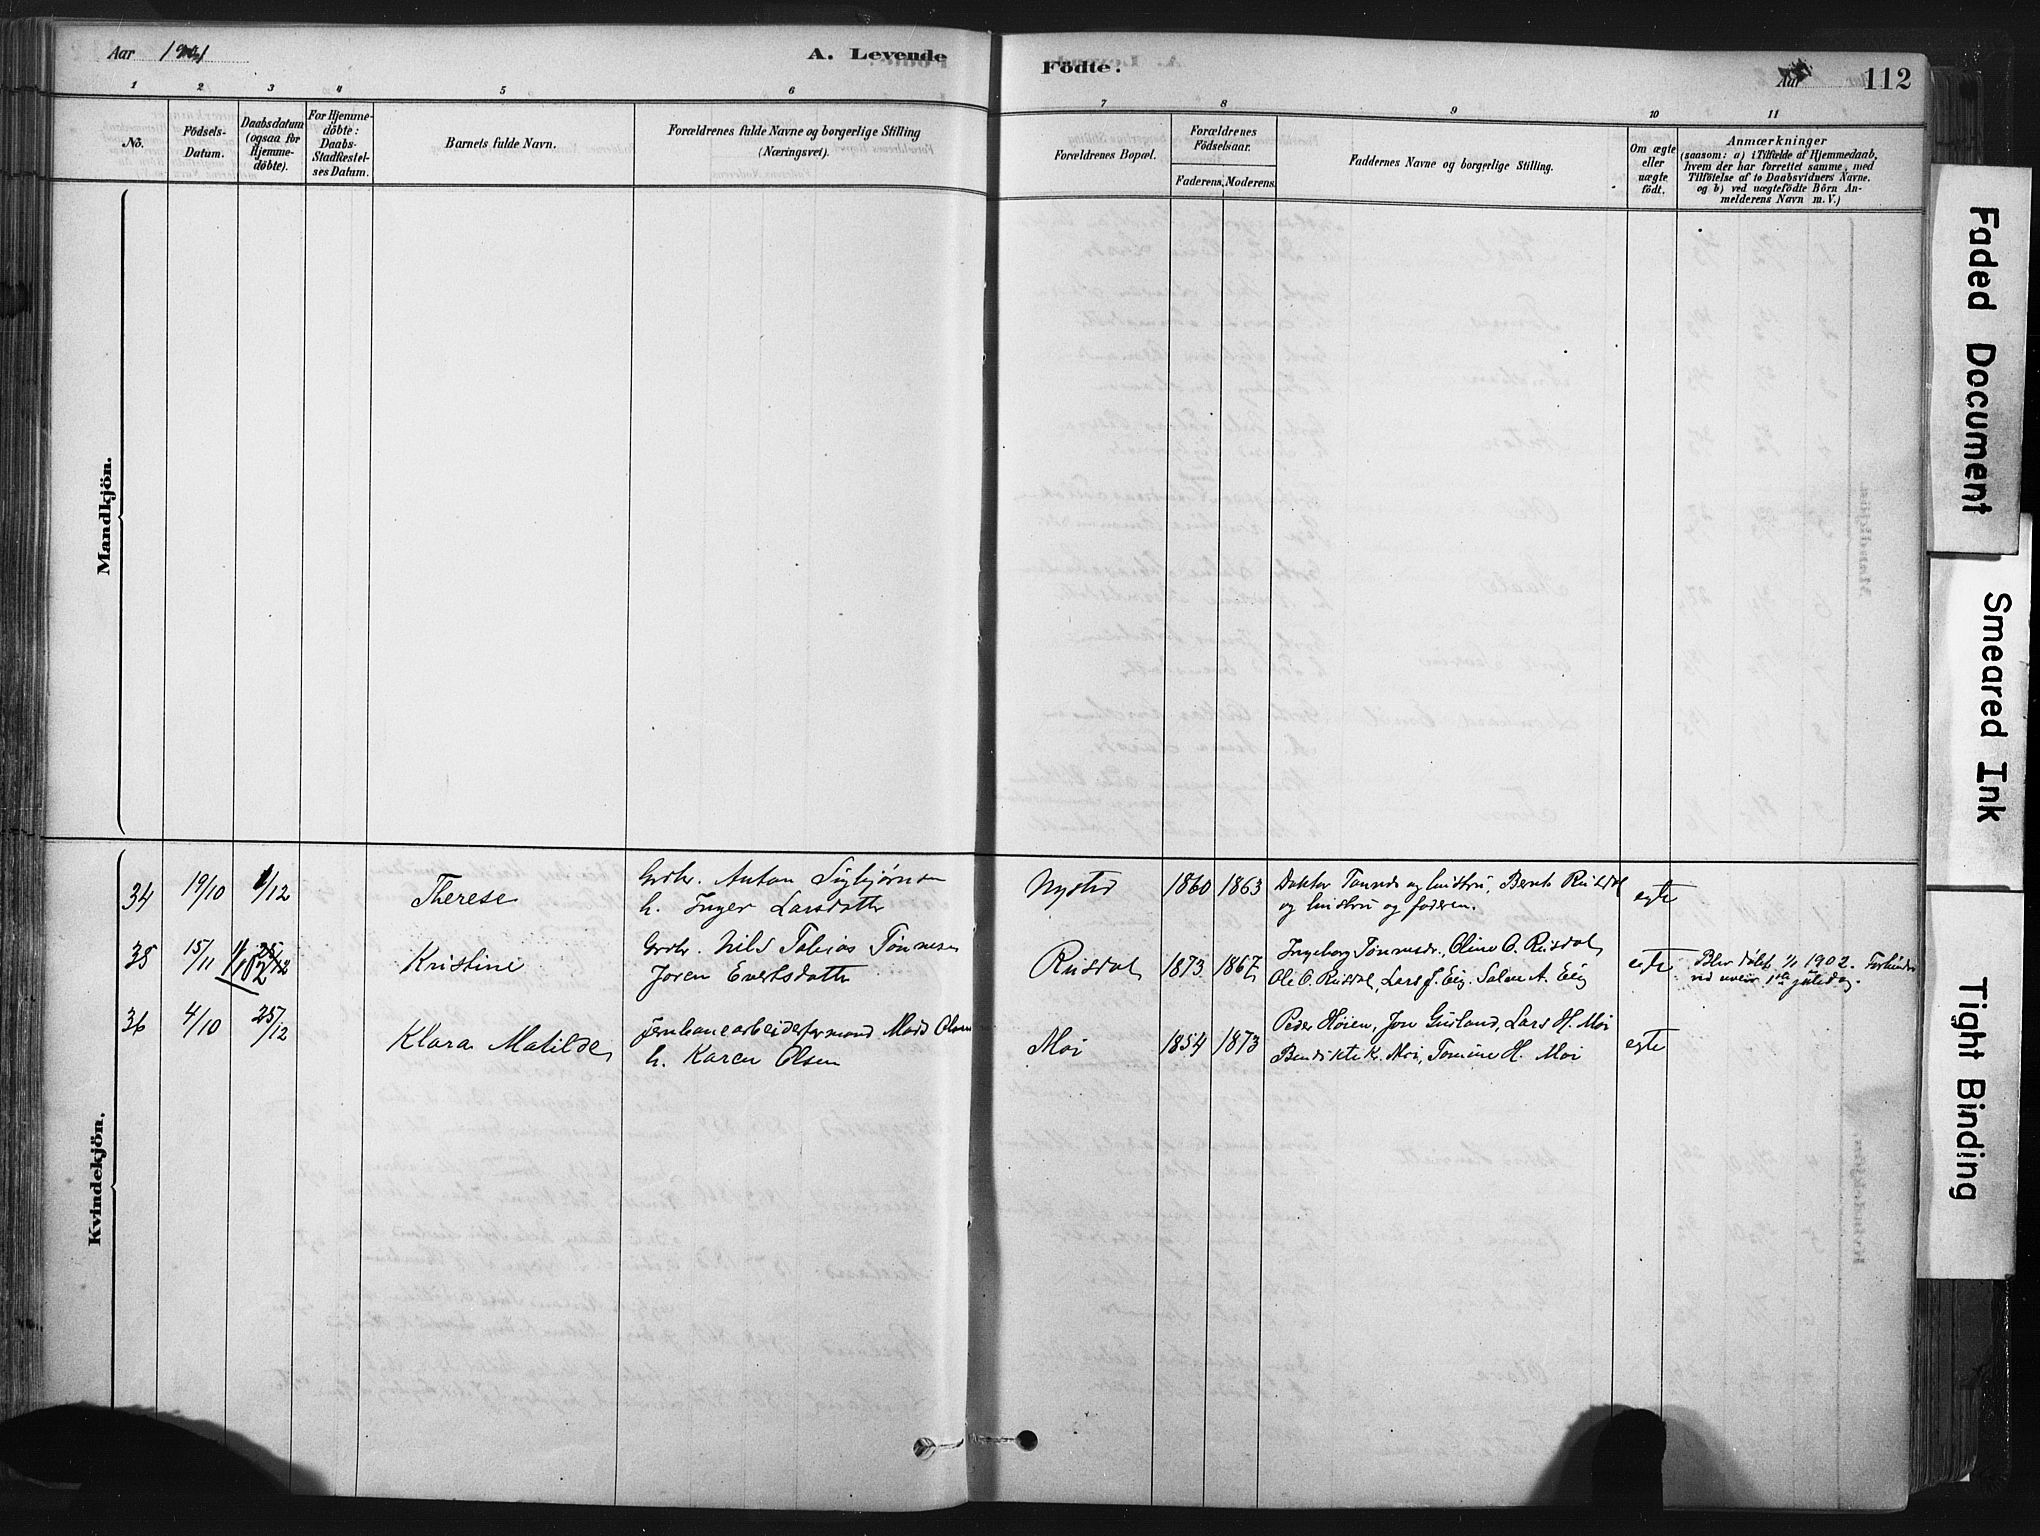 Aar 1901
A. Levende
Födte.
Aar
112
1 2 3 4 5 6
7 8 9 10 11
No.
Födsels-
Datum.
Daabsdatum
(ogsaa for
Hjemme-
döbte).
For Hjemme-
döbte:
Daabs-
Stadfæstel-
ses Datum.
Barnets fulde Navn.
Forældrenes fulde Navne og borgerlige Stilling
(Næringsvei).
Forældrenes Bopæl.
Forældrenes
Födselsaar.
Faderens. Moderens.
Faddernes Navne og borgerlige Stilling.
Om ægte
eller
uægte
födt.
Anmærkninger
(saasom: a) i Tilfælde af Hjemmedaab,
hvem der har forrettet samme, med
Tilföielse af to Daabsvidners Navne.
og b) ved uægtefödte Börn An-
melderens Navn m. V.)
Mandkjön.
Kvindekjön.
34 19/10 1/12 Therese
Grdbr. Anton Sigbjørnsen
h. Inger Larsdatter
Nysted 1860 1863
Doktor Tonnes og hustru, Bernt Rusdal
og hustru og faderen.
egte
35 15/11 Kristine
Grdbr. Nils Tobias Tønnesen
Joren Evertsdatter
Rusdal 1873 1867
Ingeborg Tønnesdr., Oline O. Rusdal,
Ole O. Rusdal, Lars J. Eig, Salve A. Eig
egte
Blev døbt 1/1 1902. Forhindret
ved uveir 1ste juledag.
36 4/10 25/12 Klara Matilde
Jernbanearbeiderformand Mads Olsen
h. Karen Olsen
Moi 1854 1873
Peder Høien, Jon Gusland, Lars H. Moi
Bendikte K. Moi, Tomine H. Moi
egte
Faded Document
Smeared Ink
Tight Binding